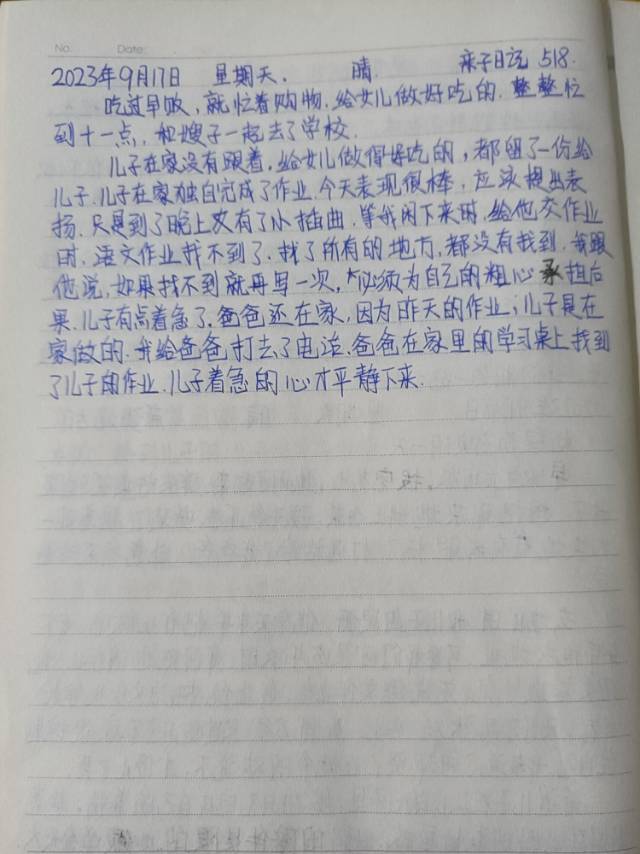 No. Date:
2023年9月17日 星期天. 晴. 亲子日记 518.
吃过早饭,就忙着购物.给女儿做好吃的.整整忙
到十一点,和嫂子一起去了学校.
儿子在家没有跟着,给女儿做得好吃的,都留了一份给
儿子.儿子在家独自完成了作业.今天表现很棒,应该提出表
扬.只是到了晚上又有了小插曲.等我闲下来时,给他交作业
时,语文作业找不到了.找了所有的地方,都没有找到.我跟
他说,如果找不到就再写一次,必须为自己的粗心承担后
果.儿子有点着急了.爸爸还在家,因为昨天的作业,儿子是在
家做的.我给爸爸打去了电话.爸爸在家里的学习桌上找到
了儿子的作业.儿子着急的心才平静下来.